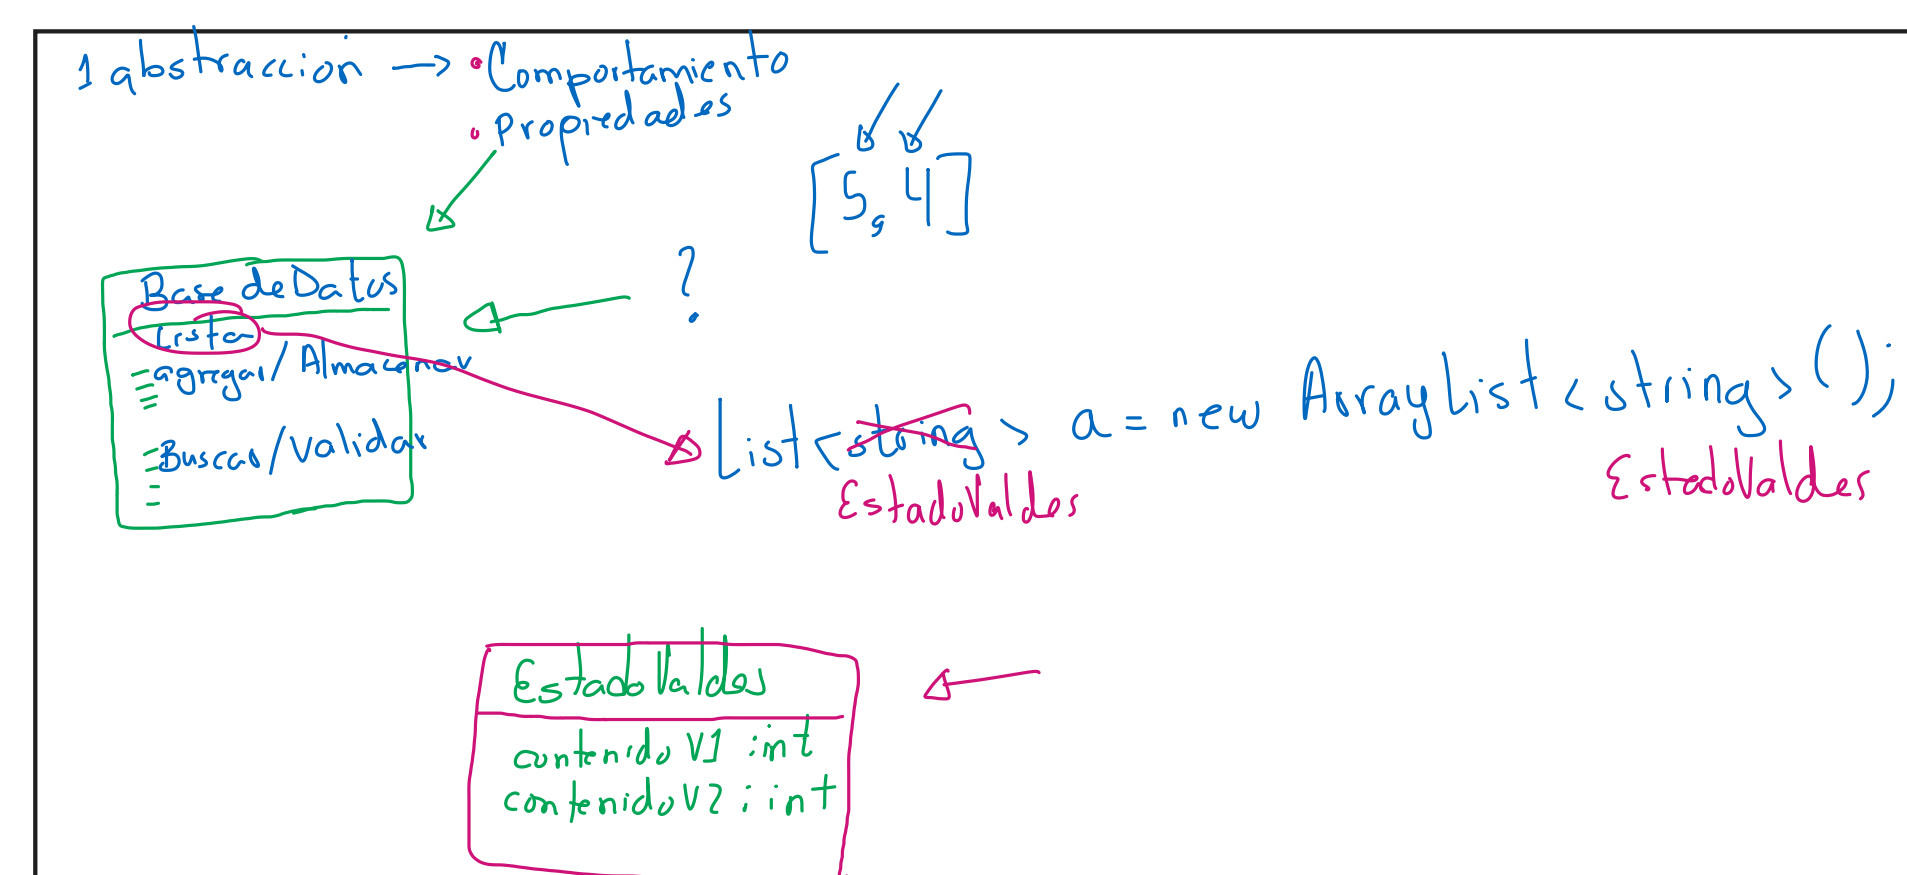 1 abstraccion → • Comportamiento
• Propiedades
[5, 4]
?
Base de Datos
Lista
agregar / Almacenar
Buscar / Validar
List <string> a = new ArrayList <string> ();
EstadoValdes
EstadoValdes
EstadoValdes
contenido V1 : int
contenido V2 : int